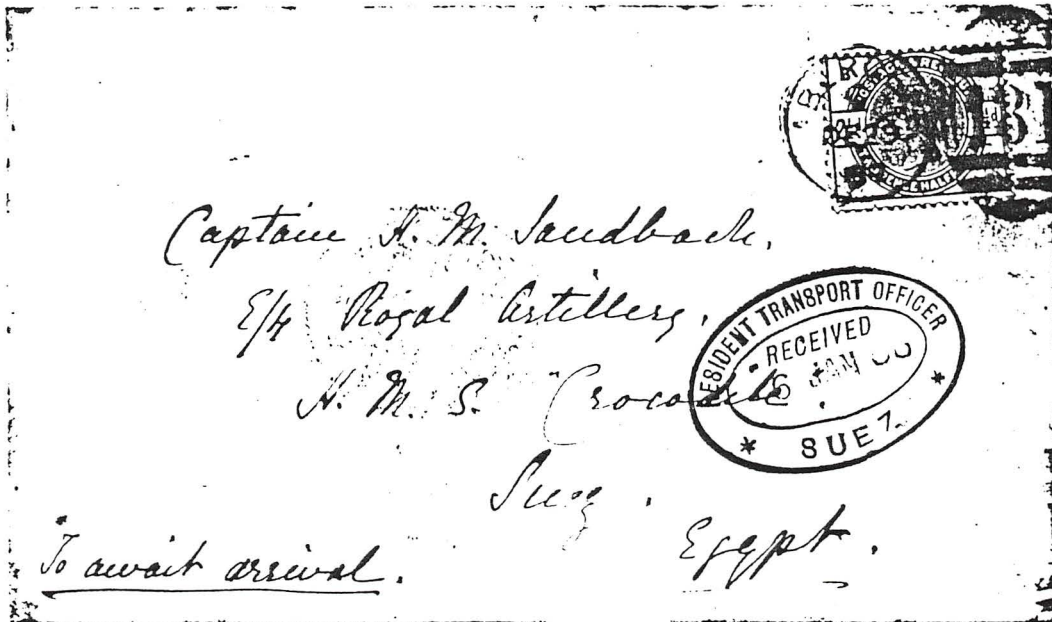 Captain H. M. Sandbach.
E/4 Royal Artillery.
H. M. S. Crocodile.
Suez.
Egypt.
To await arrival.
RESIDENT TRANSPORT OFFICER
RECEIVED
JAN
SUEZ
POSTAGE & REVENUE
HALF